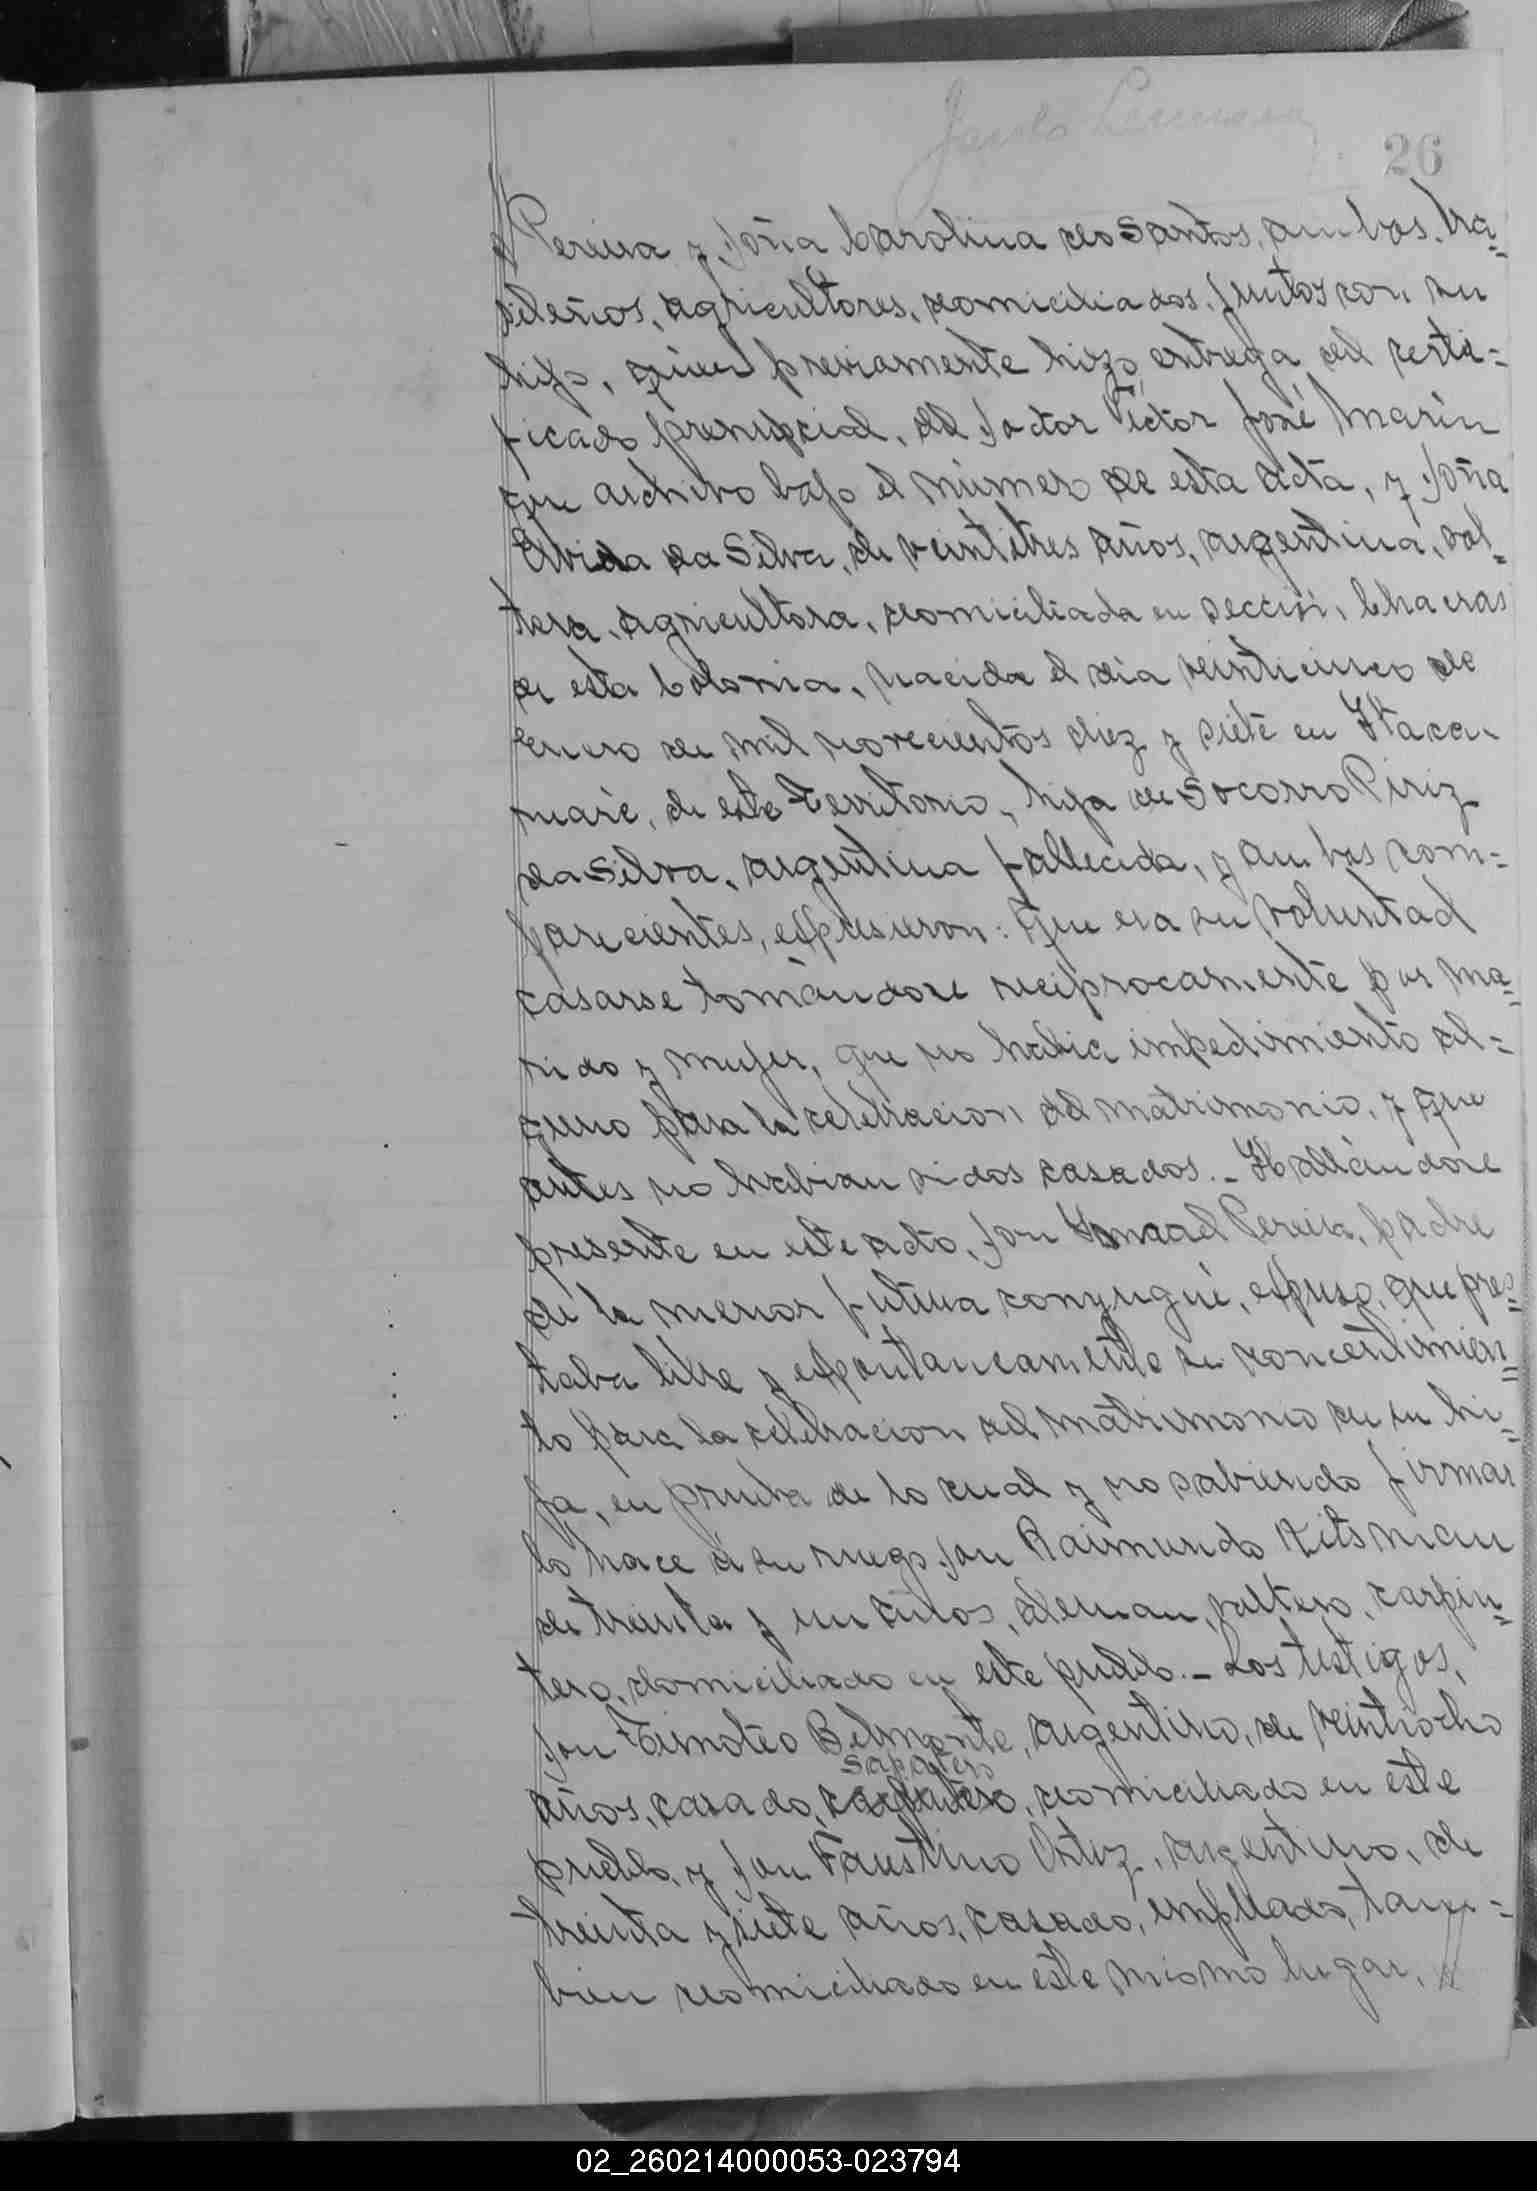 26
Pereira y doña Carolina do Santos, ambos bra=
sileños, agricultores, domiciliados juntos con su
hijo, quien previamente hizo entrega del certi=
ficado prenupcial, del doctor Victor José Marin
que archivo bajo el número de esta acta, y doña
da Silva, de veintitres años, argentina, sol=
tera, agricultora, domiciliada en sección Chacras
de esta Colonia, nacida el dia veinticinco de
Enero de mil novecientos diez y siete en Itaca-
ruaré, de este Territorio, hija de Socorro Piriz
da Silva, argentina fallecida, y ambos com=
parecientes, expresieron: Que era su voluntad
casarse tomándose reciprocamente por ma=
rido y mujer, que no habia impedimiento al=
guno para la celebracion del matrimonio, y que
antes no habian sidos casados.- Hallándose
presente en este acto, don Ismael Pereira, padre
de la menor futura conyugue, expuso, que pres=
taba libre y espontaneamente su concentimien=
to para la celebracion del matrimonio de su hi=
ja, en prueba de lo cual y no sabiendo firmar
lo hace á su ruego don Raimundo Kitsman
de treinta y un años, aleman, soltero, carpin=
tero, domiciliado en este pueblo.- Los testigos,
don Timoteo Belmonte, argentino, de veintiocho
sapatero
años, casado, domiciliado en este
pueblo, y don Faustino Ortiz, argentino, de
treinta y siete años, casado, empleado, tam=
bien domiciliado en este mismo lugar.
02_260214000053-023794